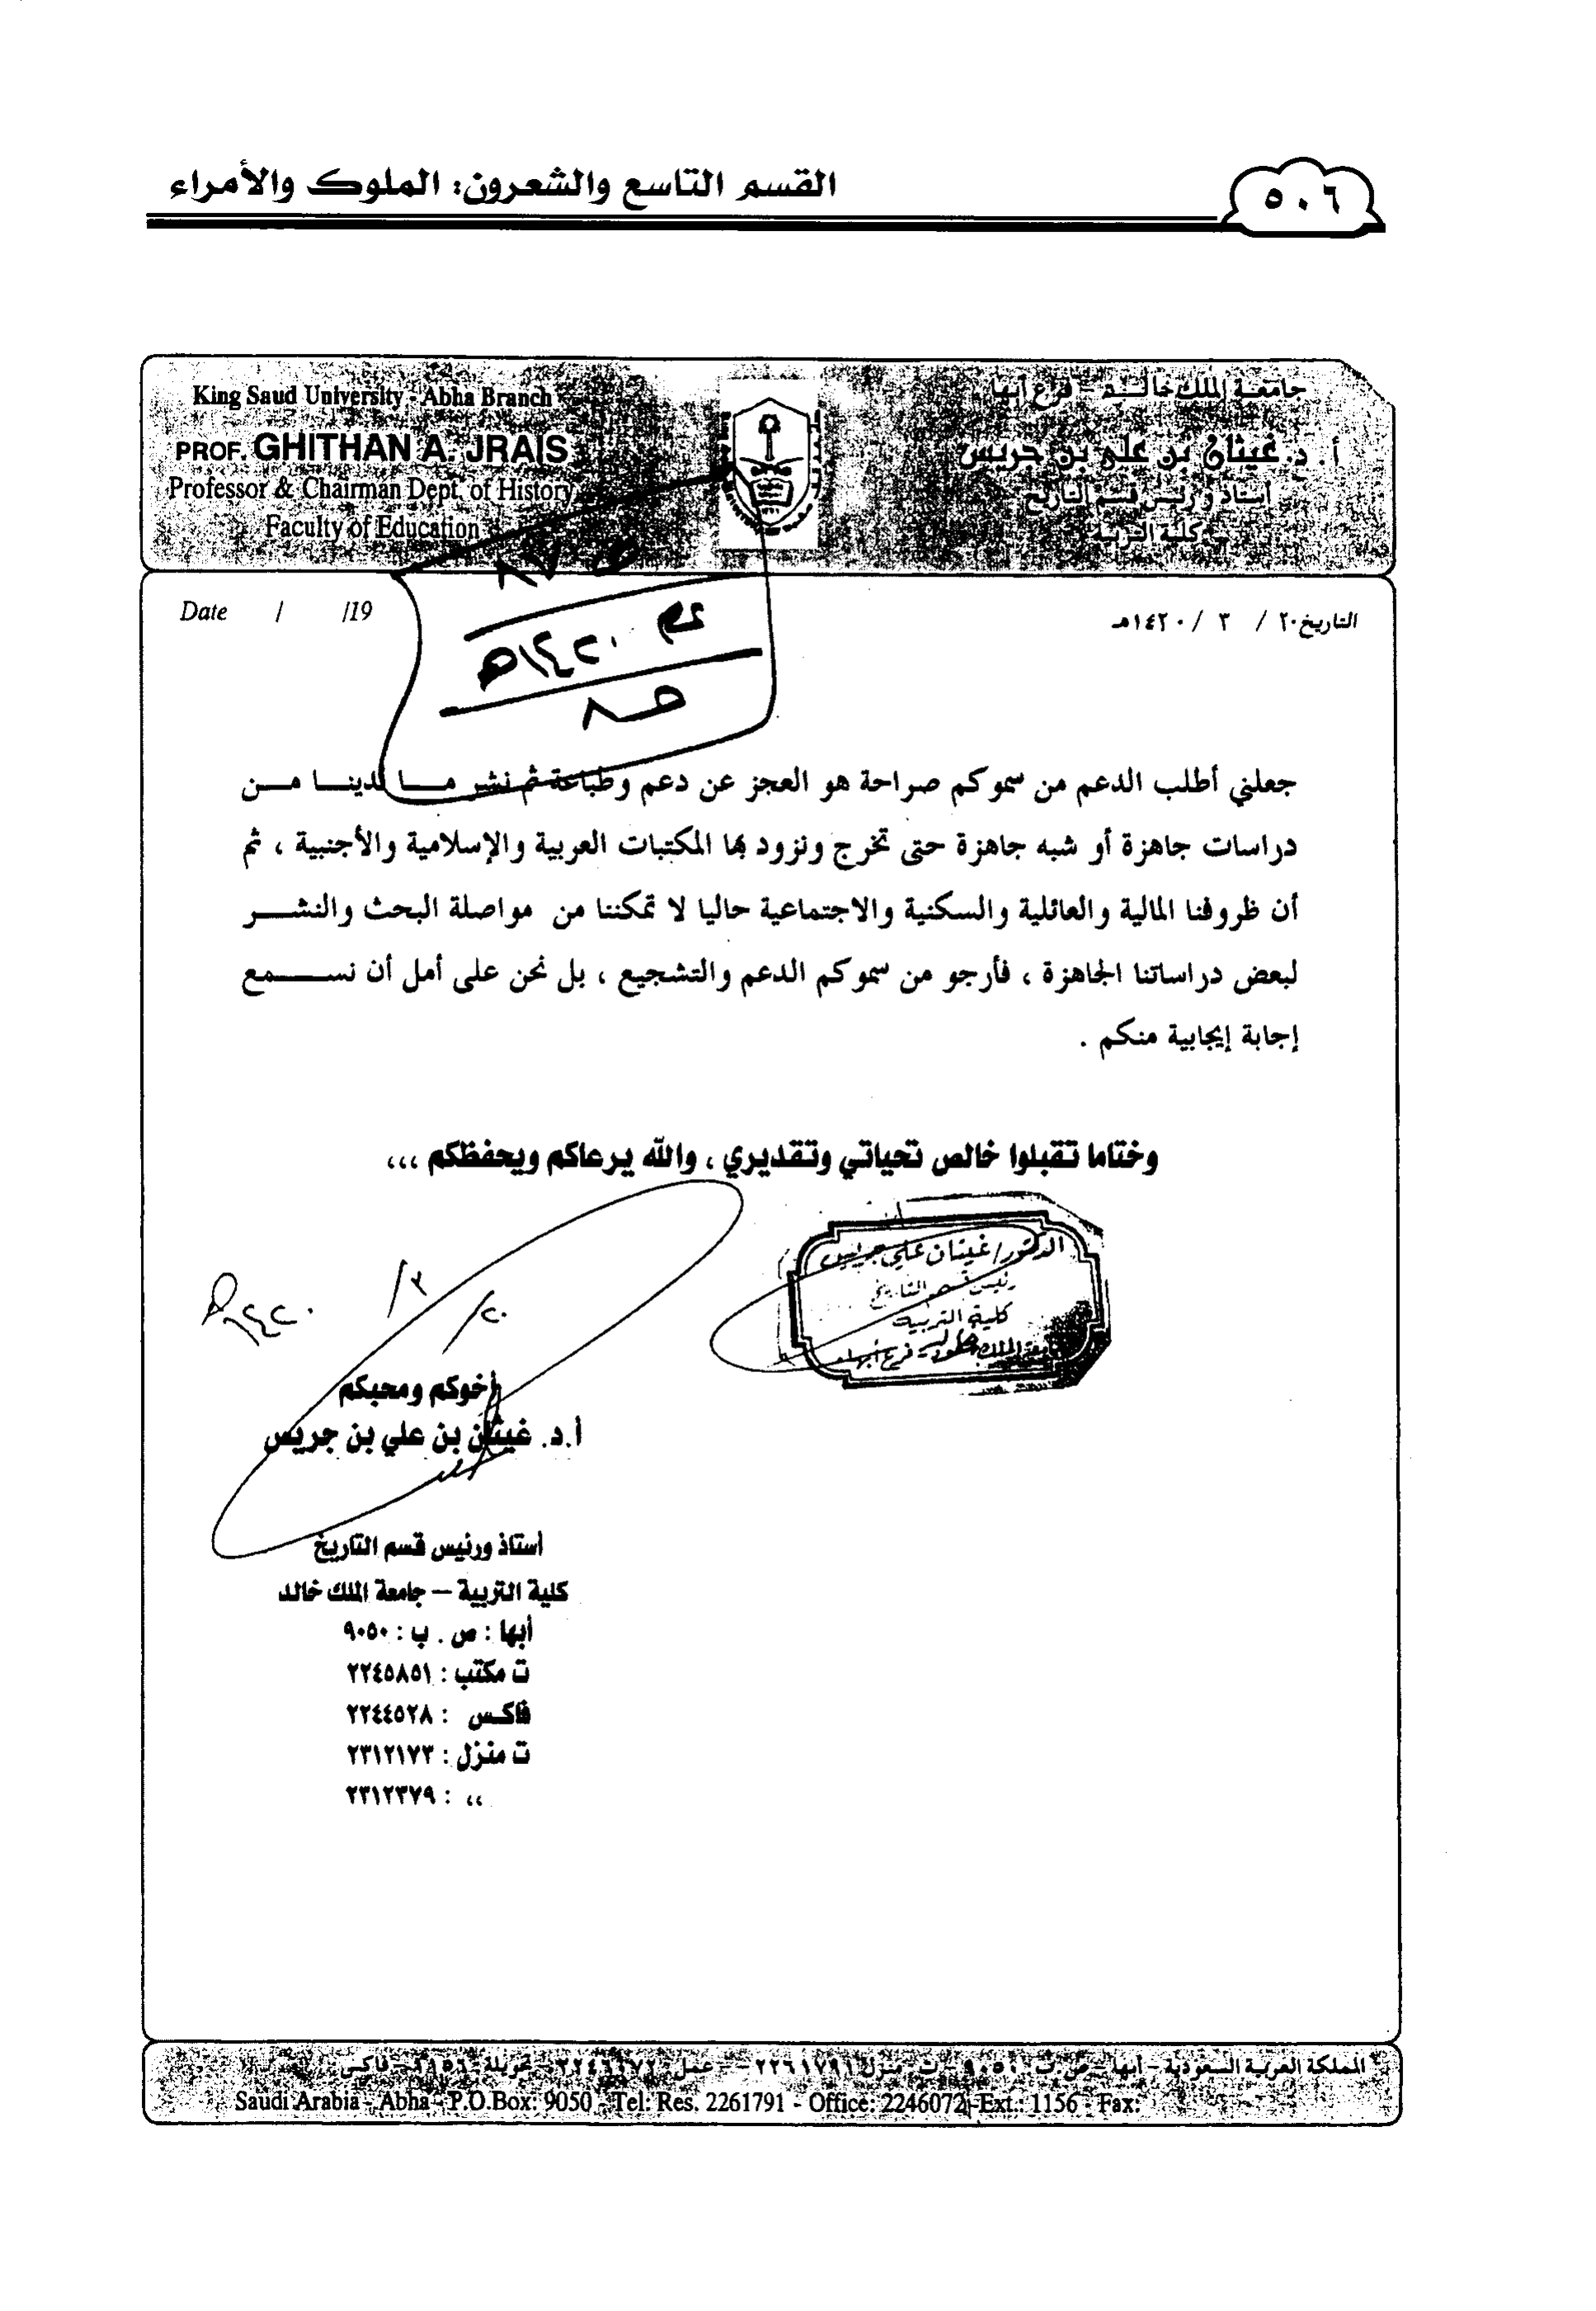 القسم التاسع والشعرون: الملوك والأمراء
٥٠٦
King Saud University - Abha Branch
PROF. GHITHAN A. JRAIS
Professor & Chairman Dept. of History
Faculty of Education
جامعة الملك خالد - فرع أبها
أ. د. غيثان بن علي بن جريس
أستاذ ورئيس قسم التاريخ
كلية التربية
Date / /19
التاريخ ٢٠ / ٣ / ١٤٢٠هـ
١٤٢٠هـ
جعلني أطلب الدعم من سموكم صراحة هو العجز عن دعم وطباعة ثم نشر مـــا لدينــا مــن
دراسات جاهزة أو شبه جاهزة حتى تخرج ونزود بها المكتبات العربية والإسلامية والأجنبية ، ثم
أن ظروفنا المالية والعائلية والسكنية والاجتماعية حاليا لا تمكننا من مواصلة البحث والنشــــر
لبعض دراساتنا الجاهزة ، فأرجو من سموكم الدعم والتشجيع ، بل نحن على أمل أن نســــمع
إجابة إيجابية منكم .
وختاما تقبلوا خالص تحياتي وتقديري ، والله يرعاكم ويحفظكم ،،،
الدكتور/ غيثان علي جريس
رئيس قسم التاريخ
كلية التربية
٢٠/ ٣/ ١٤٢٠هـ
أخوكم ومحبكم
أ.د. غيثان بن علي بن جريس
أستاذ ورئيس قسم التاريخ
كلية التربية – جامعة الملك خالد
أبها : ص . ب : ٩٠٥٠
ت مكتب : ٢٢٤٥٨٥١
فاكس : ٢٢٤٤٥٢٨
ت منزل : ٢٣١٢١٧٣
،، : ٢٣١٢٣٧٩
المملكة العربية السعودية - أبها - ص.ب: ٩٠٥٠ - ت: منزل ٢٢٦١٧٩١ - عمل: - تحويلة ١١٥٦ - فاكس
Saudi Arabia - Abha - P.O.Box: 9050 - Tel: Res. 2261791 - Office: 2246072 - Ext.: 1156 - Fax: